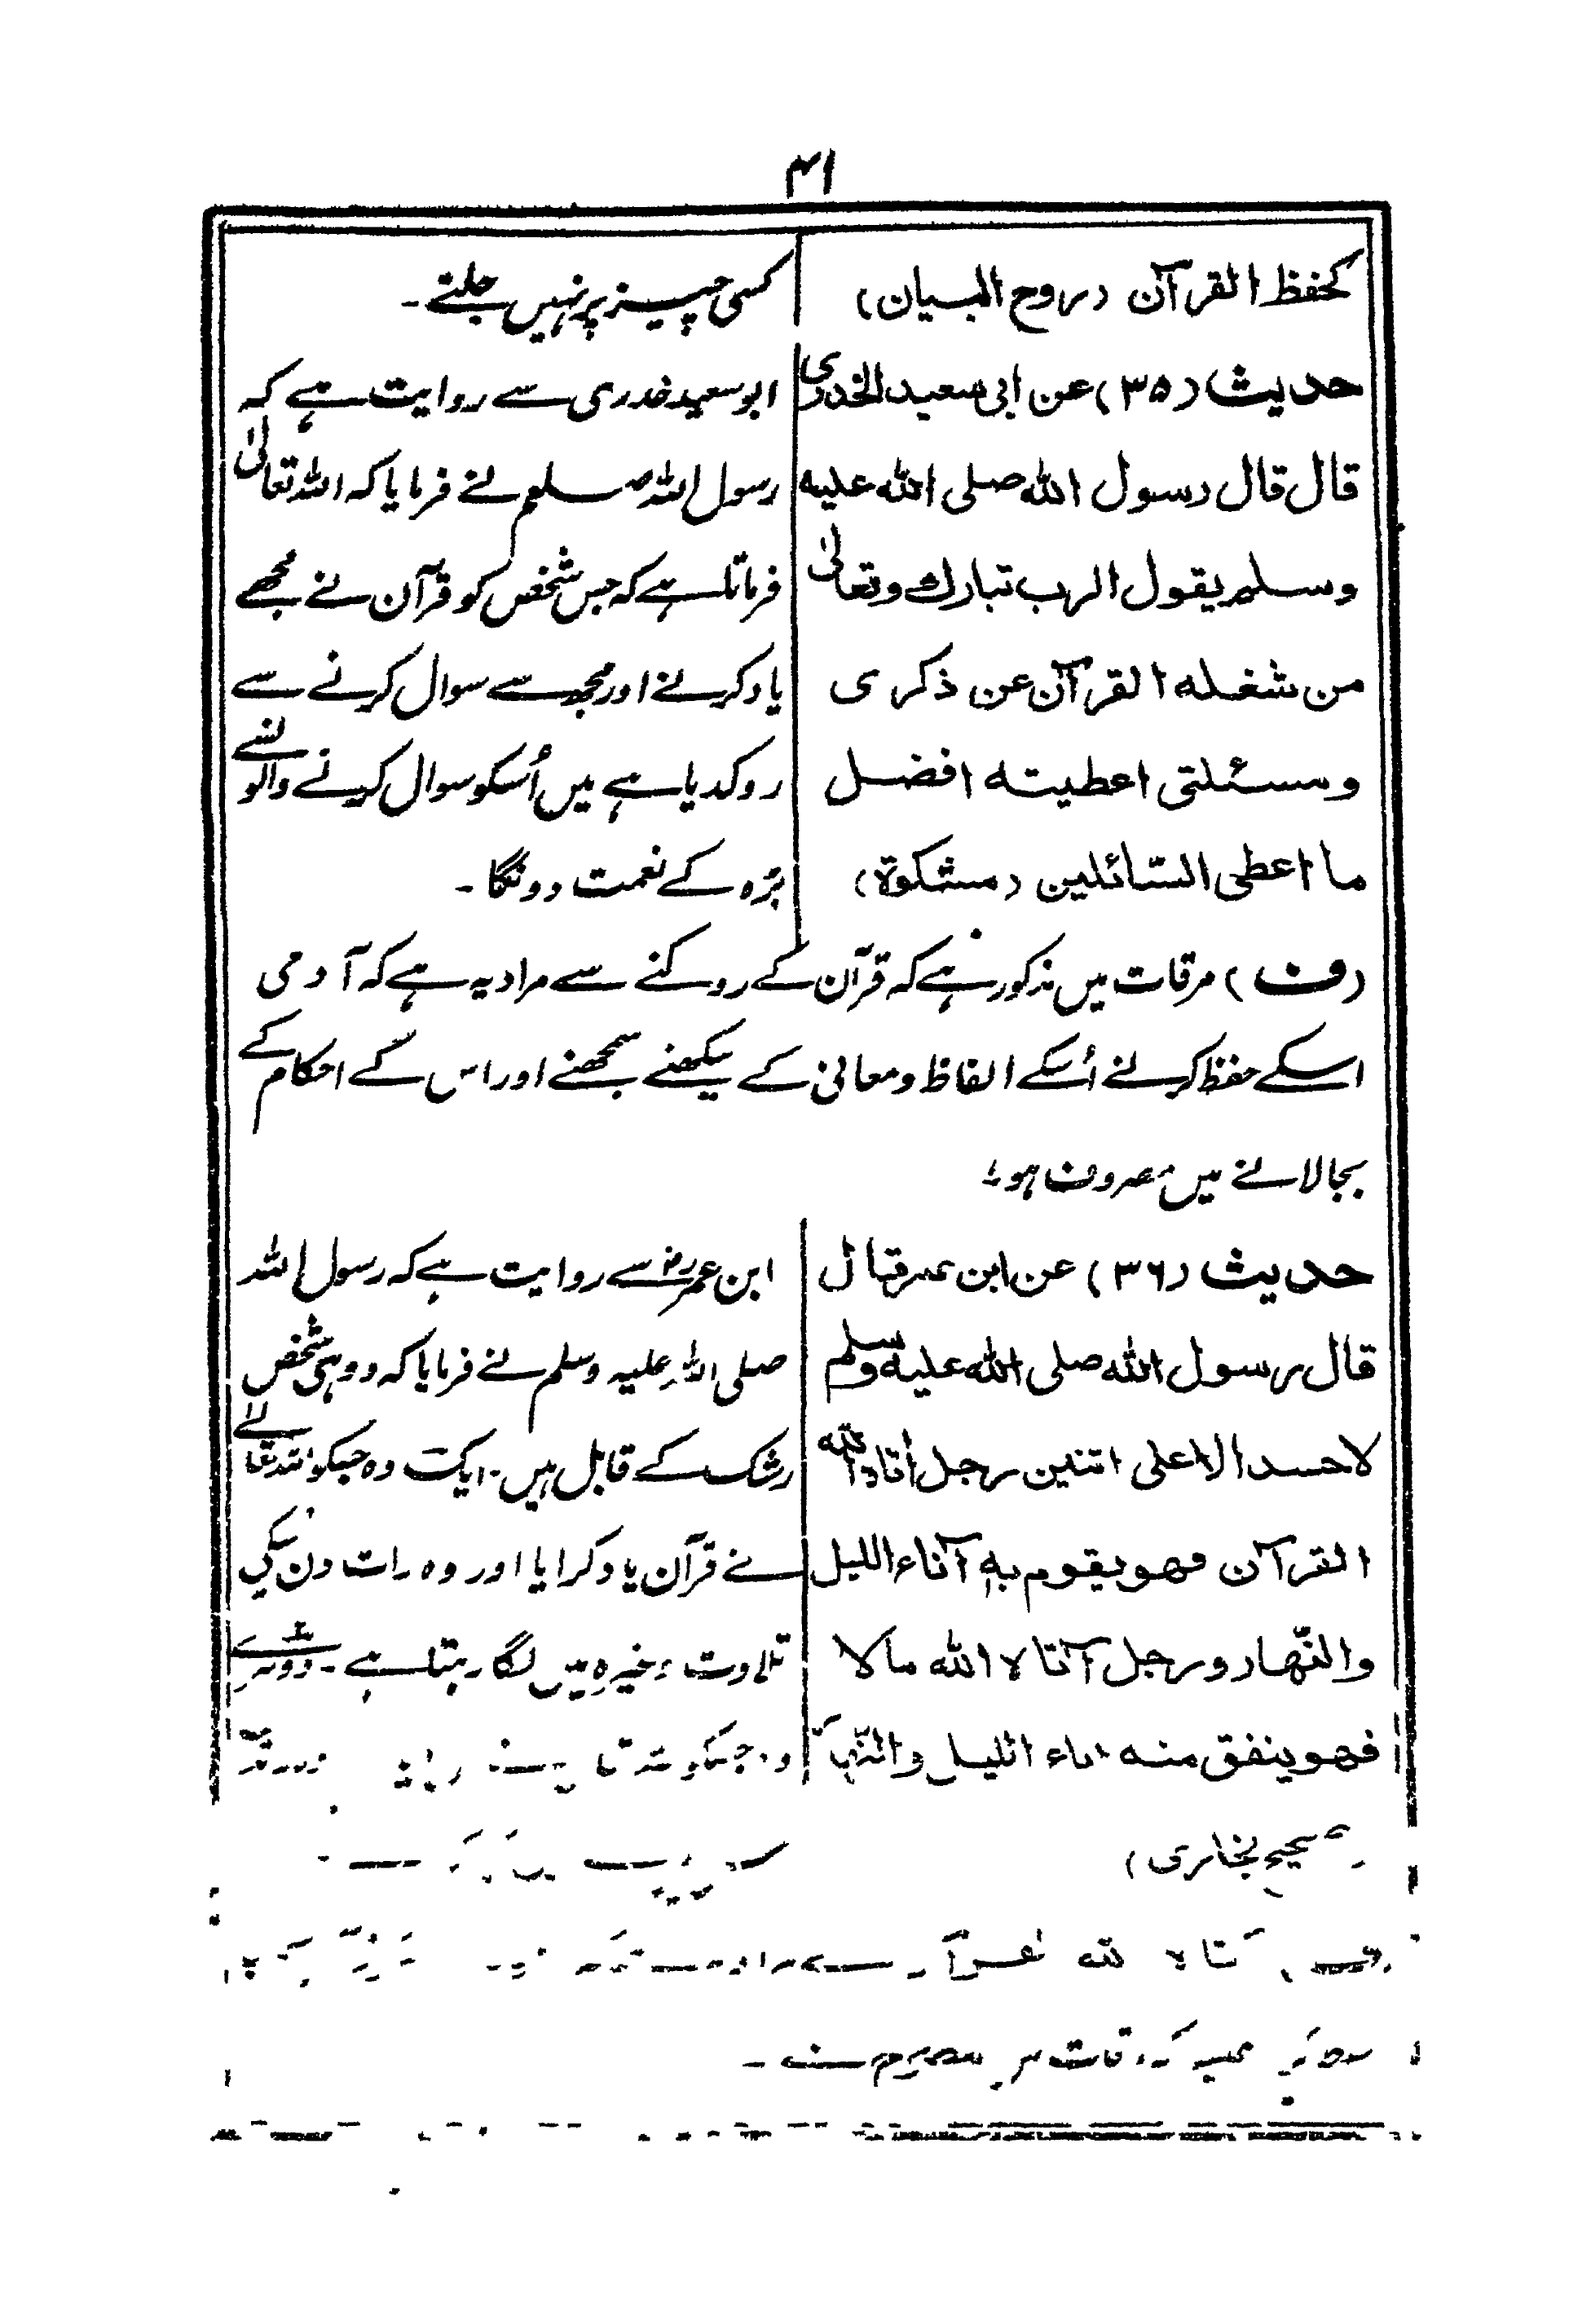 ۴۱
کحفظ القرآن (روح البیان)
کسی چیز پر نہیں جلتے ۔
حدیث (۳۵) عن ابی سعید الخدری
قال قال رسول الله صلی الله علیه
وسلم یقول الرب تبارك وتعالیٰ
من شغله القرآن عن ذکری
ومسئلتی اعطیته افضل
ما اعطی السّائلین (مشکوة)
ابو سعید خدری سے روایت ہے کہ
رسول اللہ صلعم نے فرمایا کہ اللہ تعالیٰ
فرماتا ہے کہ جس شخص کو قرآن نے مجھے
یاد کرنے اور مجھ سے سوال کرنے سے
روکدیا ہے میں اُسکو سوال کرنے والوں سے
بڑہ کے نعمت دونگا ۔
(ف) مرقات میں مذکور ہے کہ قرآن کے روکنے سے مراد یہ ہے کہ آدمی
اسکے حفظ کرنے اُسکے الفاظ و معانی کے سیکھنے سمجھنے اور اس کے احکام کے
بجا لانے میں مصروف ہو
حدیث (۳۶) عن ابن عمر قال
قال رسول الله صلی الله علیه وسلم
لا حسد الا علی اثنین رجل أتاه الله
القرآن فهو یقوم به آناء اللیل
والنّهار ورجل آتاه الله مالا
فهو ینفق منه اناء اللیل والنّهار
صحیح بخاری)
ابن عمر رض سے روایت ہے کہ رسول اللہ
صلی اللہ علیہ وسلم نے فرمایا کہ دو ہی شخص
رشک کے قابل ہیں ۔ ایک وہ جسکو اللہ تعالے
نے قرآن یاد کرایا اور وہ رات دن اسکی
تلاوت وغیرہ میں لگا رہتا ہے ۔ دوسرے